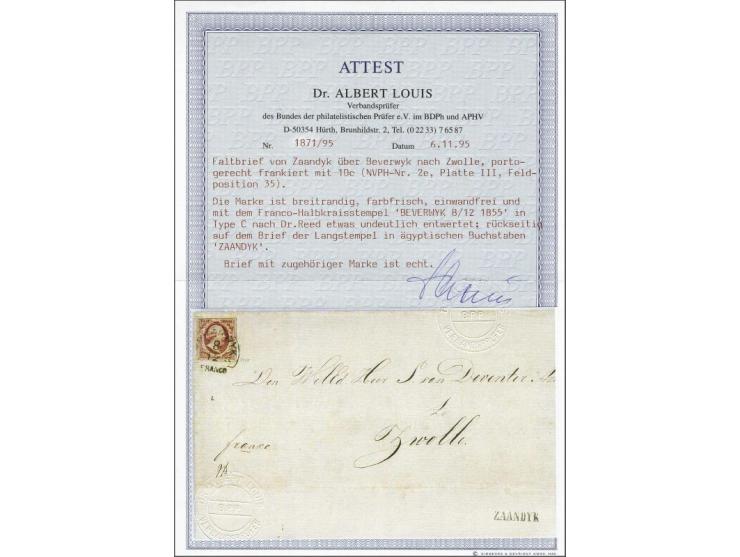 ATTEST
Dr. ALBERT LOUIS
Verbandsprüfer
des Bundes der philatelistischen Prüfer e.V. im BDPh und APHV
D-50354 Hürth, Brunhildstr. 2, Tel. (0 22 33) 7 65 87
Nr. 1871/95 Datum 6.11.95
Faltbrief von Zaandyk über Beverwyk nach Zwolle, porto-
gerecht frankiert mit 10c (NVPH-Nr. 2e, Platte III, Feld-
position 35).
Die Marke ist breitrandig, farbfrisch, einwandfrei und
mit dem Franco-Halbkraisstempel 'BEVERWYK 8/12 1855' in
Type C nach Dr.Reed etwas undeutlich entwertet; rückseitig
auf dem Brief der Langstempel in ägyptischen Buchstaben
'ZAANDYK'.
Brief mit zugehöriger Marke ist echt.
BPP
FRANCO
Den Welld Heer S van Deventer
Te
Zwolle
franco
ZAANDYK
BPP